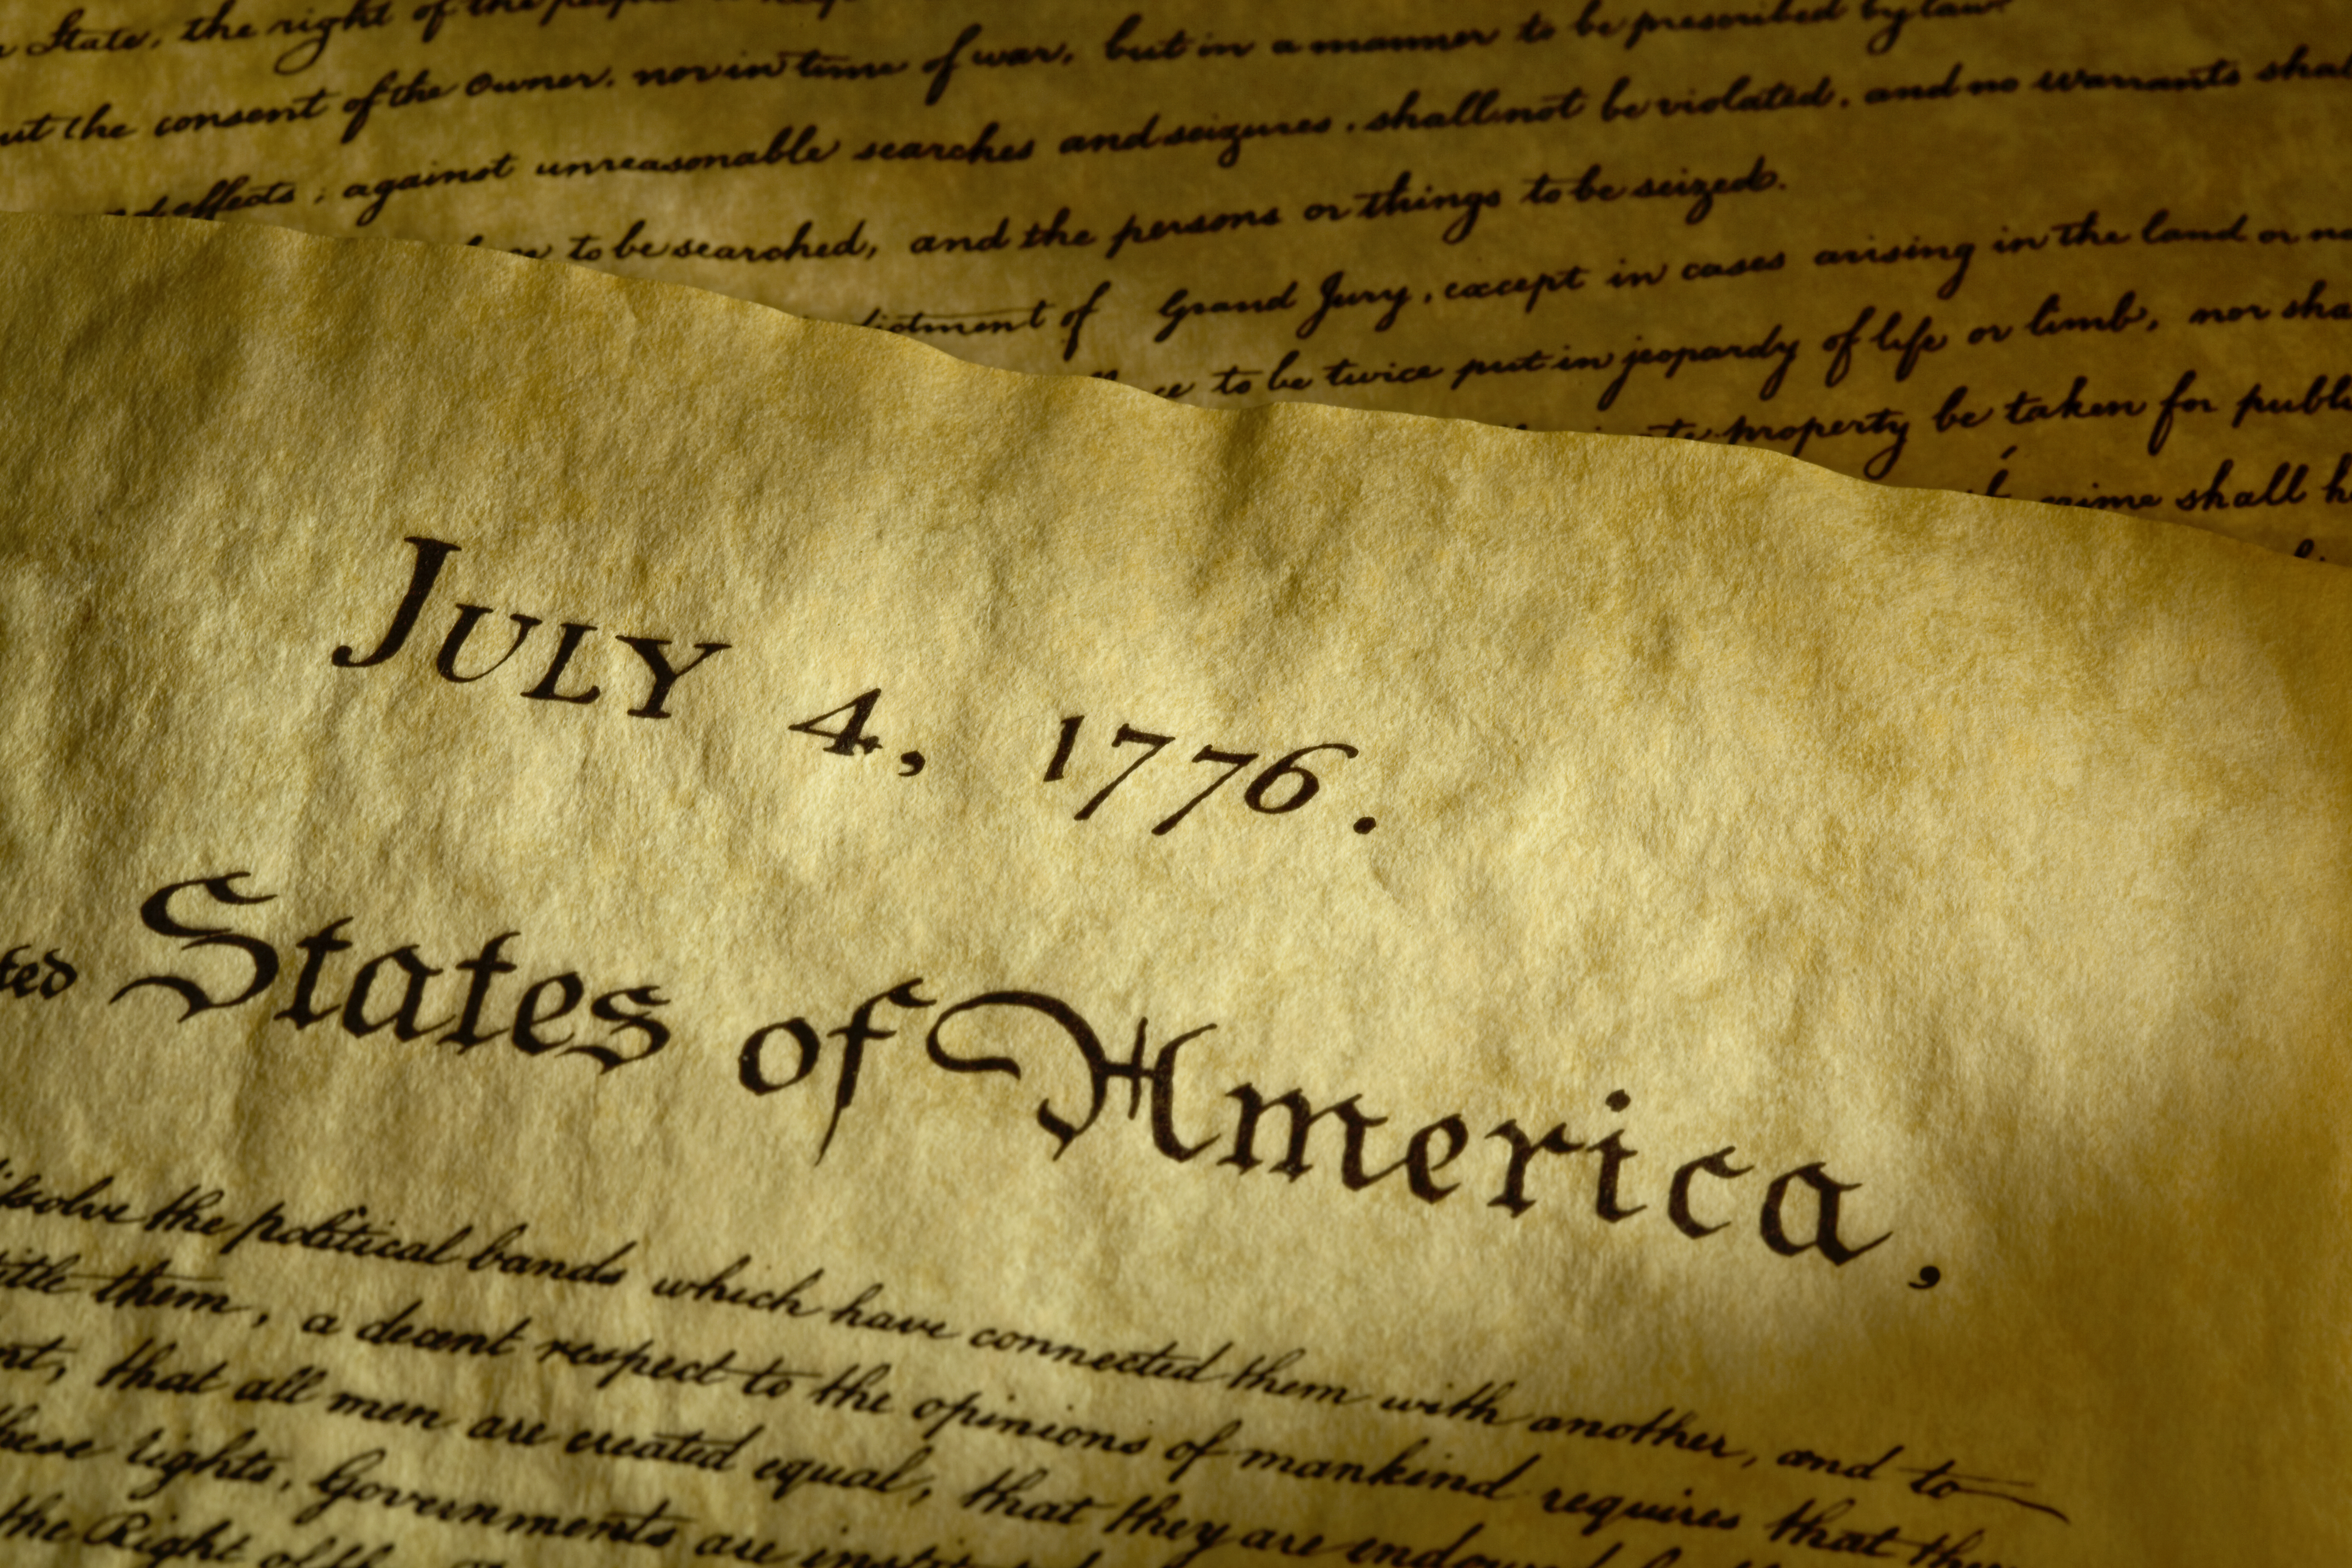 State, the right of the people
out the consent of the Owner, nor in time of war, but in a manner to be prescribed by law.
and effects, against unreasonable searches and seizures, shall not be violated, and no warrants shall
to be searched, and the persons or things to be seized.
dictment of Grand Jury, except in cases arising in the land or na
ce to be twice put in jeopardy of life or limb, nor sha
te property be taken for publi
crime shall h
JULY 4, 1776.
ted States of America,
issolve the political bands which have connected them with another, and to
title them, a decent respect to the opinions of mankind requires that they
nt, that all men are created equal, that they are endowed
these rights, Governments are instit
the Right of the